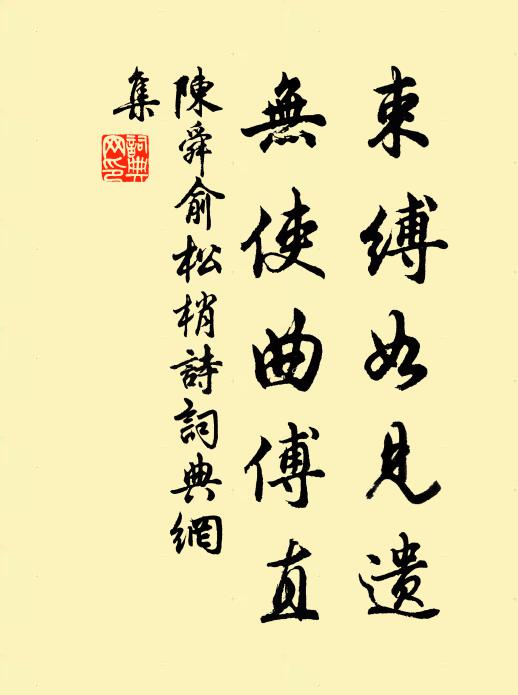 束缚如見遗
無使曲傅直
陳舜俞松梢詩詞典網
集
詞典網印